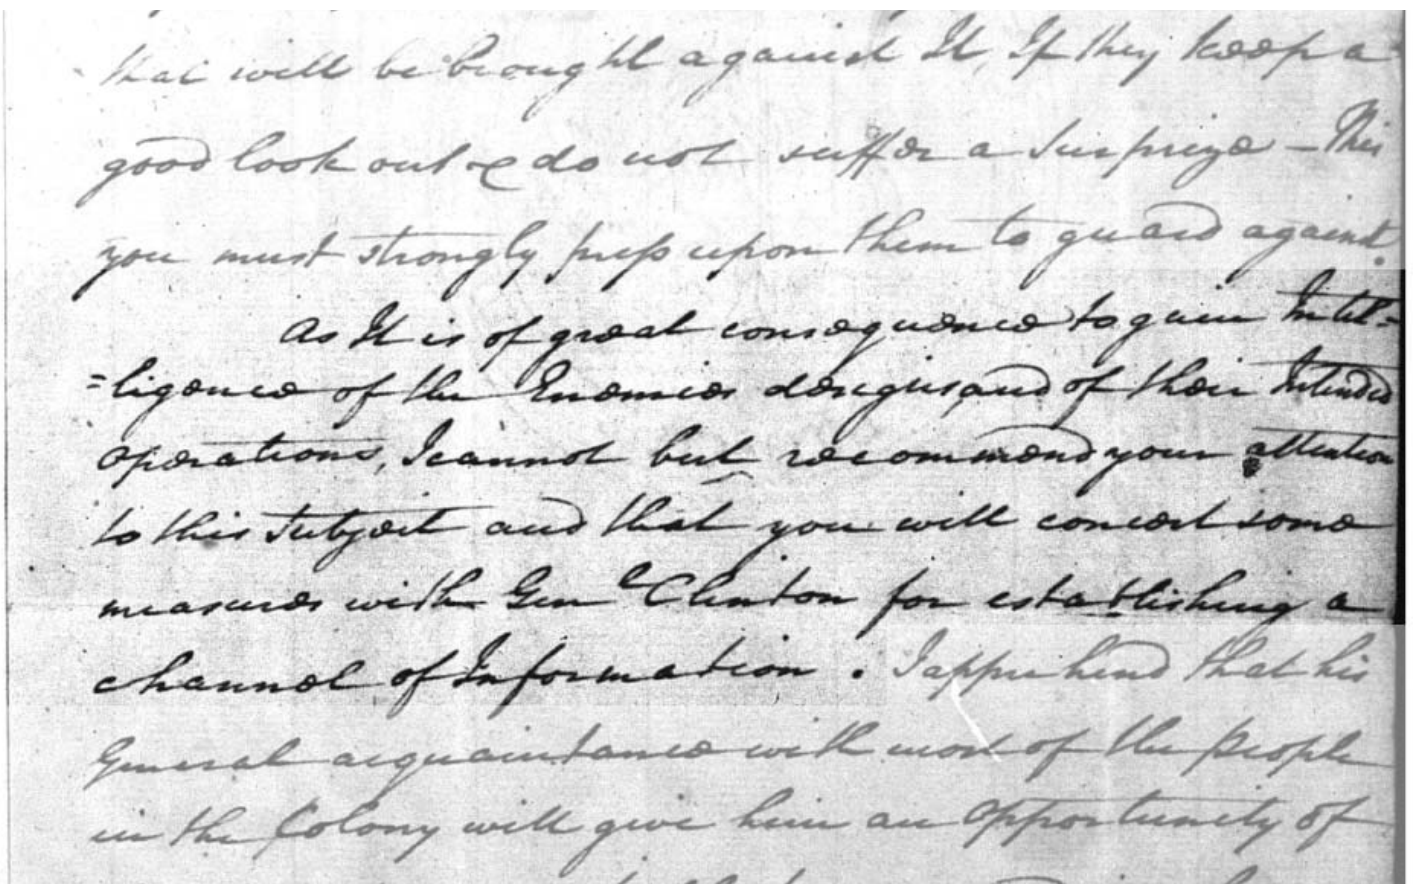 that will be brought against It, If they keep a
good look out & do not suffer a Surprize – This
you must strongly press upon them to guard against.
As It is of great consequence to gain Intel=
=ligence of the Enemies designs, and of their Intended
operations, I cannot but recommend your attention
to this Subject and that you will concert some
measures with Genl Clinton for establishing a
channel of Information. I apprehend that his
General acquaintance with most of the People
in the Colony will give him an opportunity of